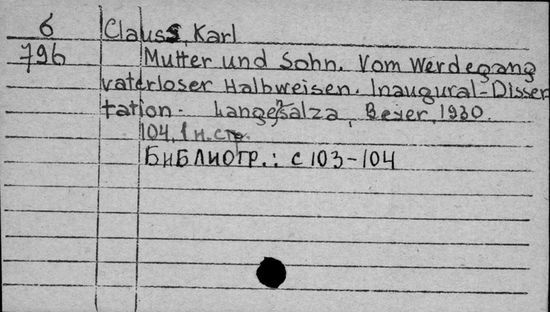 6 Clauss, Karl
796 Mutter und Sohn. Vom Werdegang
vaterloser Halbweisen. Inaugural-Disser
tation. Langensalza, Beyer, 1930.
104, 1 н. стр.
Библиогр.: с 103-104